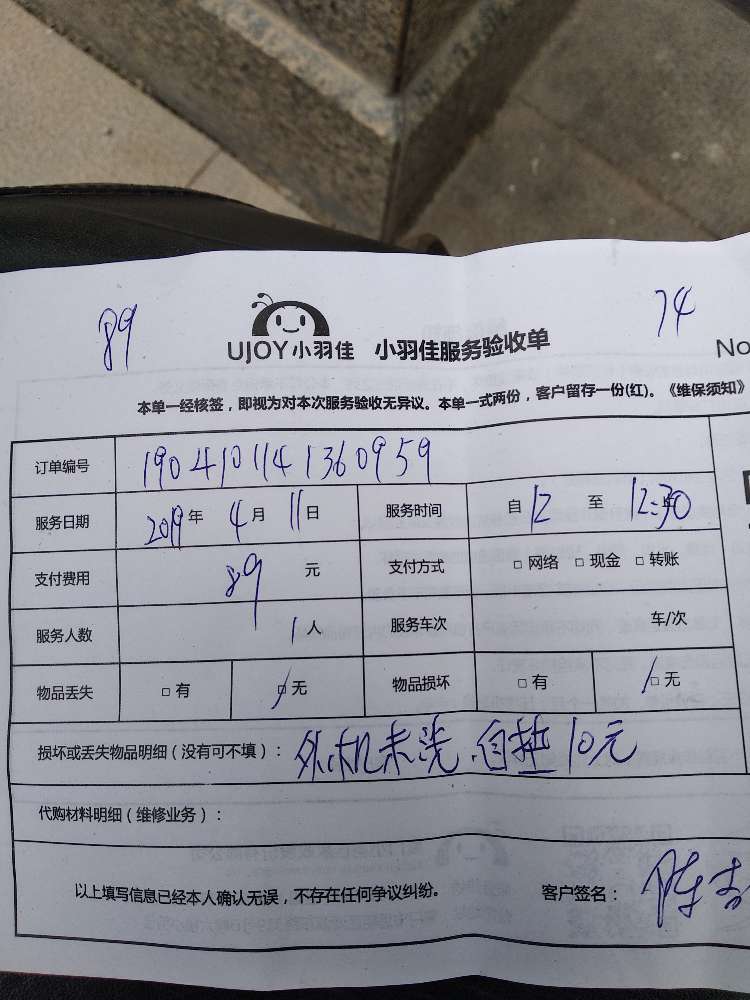 89
74
UJOY小羽佳 小羽佳服务验收单
No
本单一经核签，即视为对本次服务验收无异议。本单一式两份，客户留存一份(红)。《维保须知》
订单编号 1904101141360959
服务日期 2019年 4月 11日 服务时间 自12 至 12:30
支付费用 89 元 支付方式 □网络 □现金 □转账
服务人数 1人 服务车次 车/次
物品丢失 □有 □无 物品损坏 □有 □无
损坏或丢失物品明细（没有可不填）： 外机未洗.自挂10元
代购材料明细（维修业务）：
以上填写信息已经本人确认无误，不存在任何争议纠纷。 客户签名： 陈